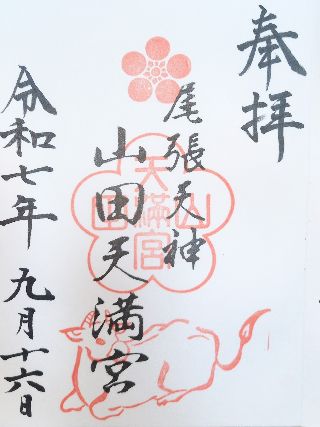 奉拝
尾張天神
山田天満宮
令和七年 九月十六日
山田
天満宮